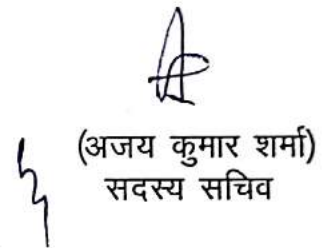 (अजय कुमार शर्मा)
सदस्य सचिव